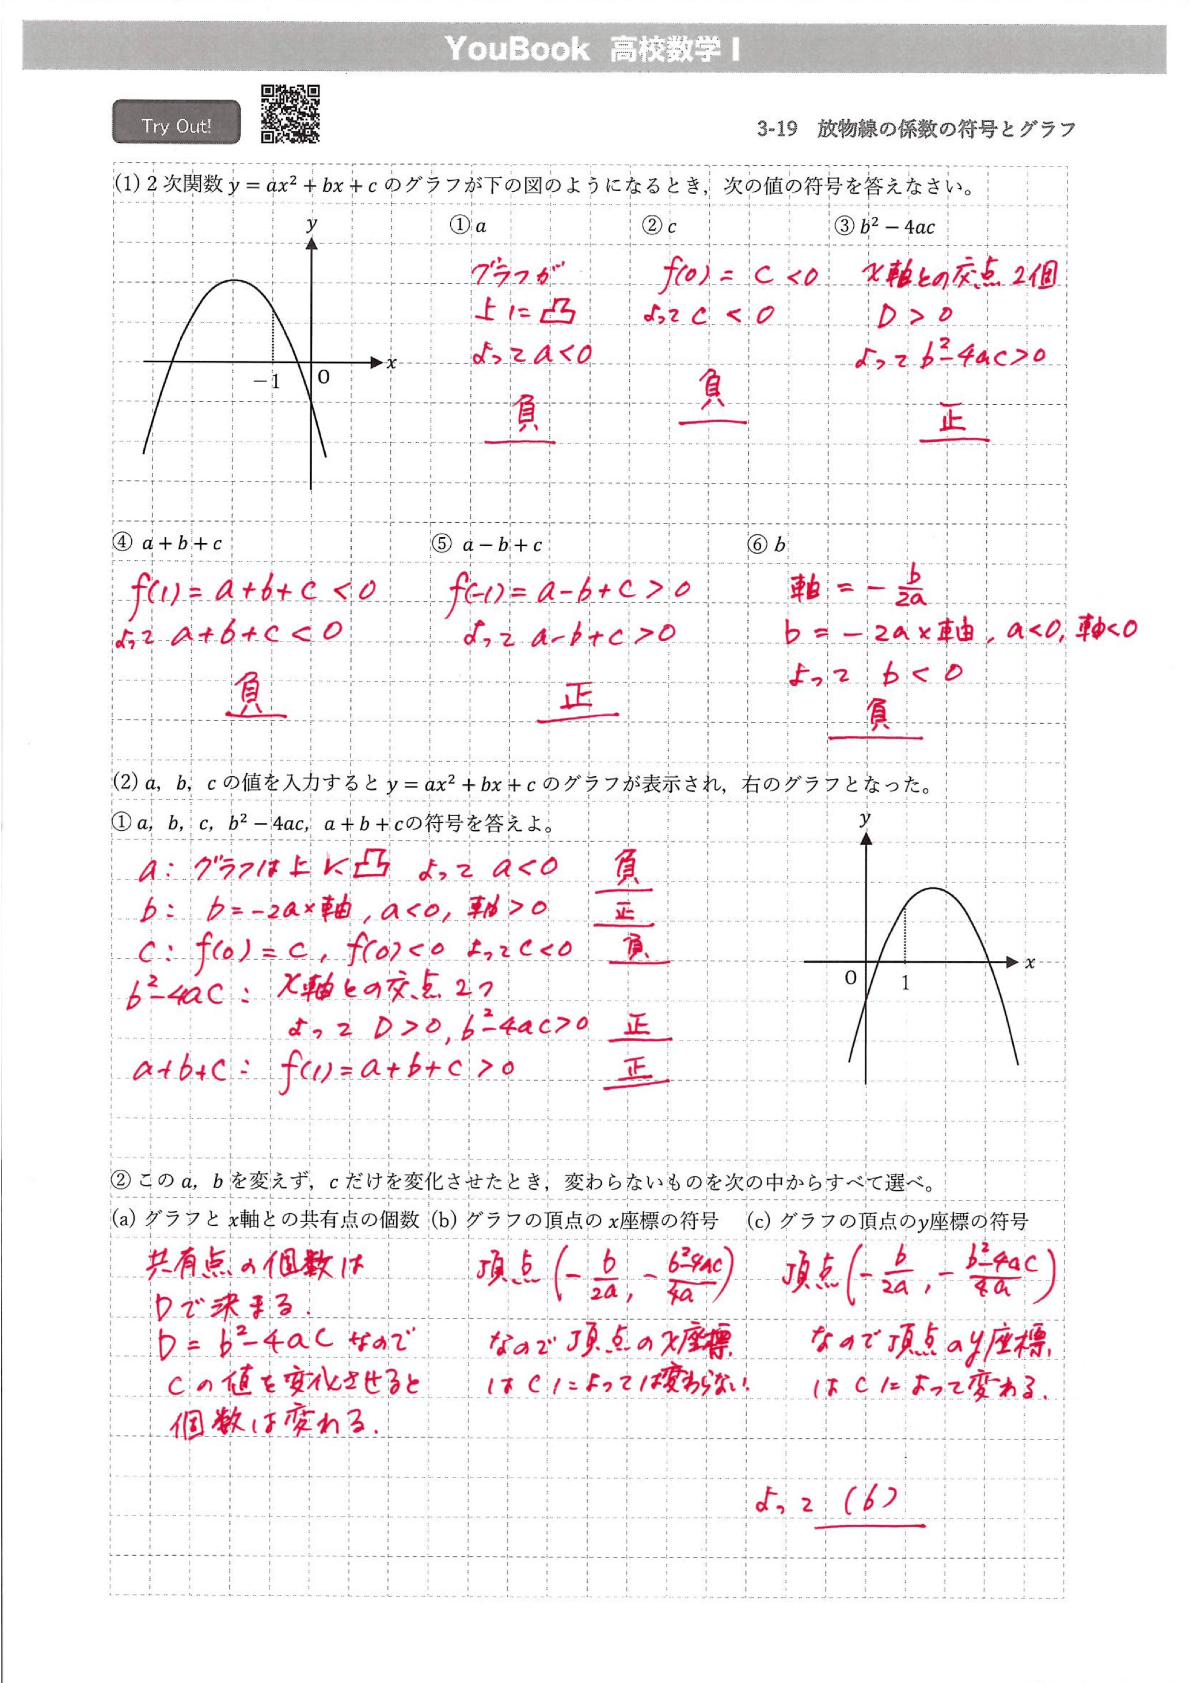 YouBook 高校数学 I
Try Out!
3-19 放物線の係数の符号とグラフ
(1) 2 次関数 y = ax² + bx + c のグラフが下の図のようになるとき，次の値の符号を答えなさい。
① a ② c ③ b² − 4ac
y
x
−1
O
グラフが
上に凸
よって a<0
負
f(0) = c <0
よって c < 0
負
x軸との交点 2個
D > 0
よって b²-4ac>0
正
④ a + b + c ⑤ a − b + c ⑥ b
f(1) = a+b+c <0
よって a+b+c < 0
負
f(-1) = a-b+c > 0
よって a-b+c > 0
正
軸 = - b/2a
b = -2a×軸, a<0, 軸<0
よって b < 0
負
(2) a，b，c の値を入力すると y = ax² + bx + c のグラフが表示され，右のグラフとなった。
① a，b，c，b² − 4ac，a + b + cの符号を答えよ。
a: グラフは上に凸 よって a<0 負
b: b=-2a×軸, a<0, 軸>0 正
c: f(0)=c, f(0)<0 よって c<0 負
b²-4ac: x軸との交点 2つ
よって D>0, b²-4ac>0 正
a+b+c: f(1)=a+b+c >0 正
y
x
O
1
② この a，b を変えず，c だけを変化させたとき，変わらないものを次の中からすべて選べ。
(a) グラフと x軸との共有点の個数 (b) グラフの頂点の x座標の符号 (c) グラフの頂点のy座標の符号
共有点の個数は
Dで決まる.
D = b²-4ac なので
cの値を変化させると
個数は変わる.
頂点 (- b/2a, - b²-4ac/4a)
なので頂点のx座標
はcによっては変わらない.
頂点 (- b/2a, - b²-4ac/4a)
なので頂点のy座標
はcによって変わる.
よって (b)